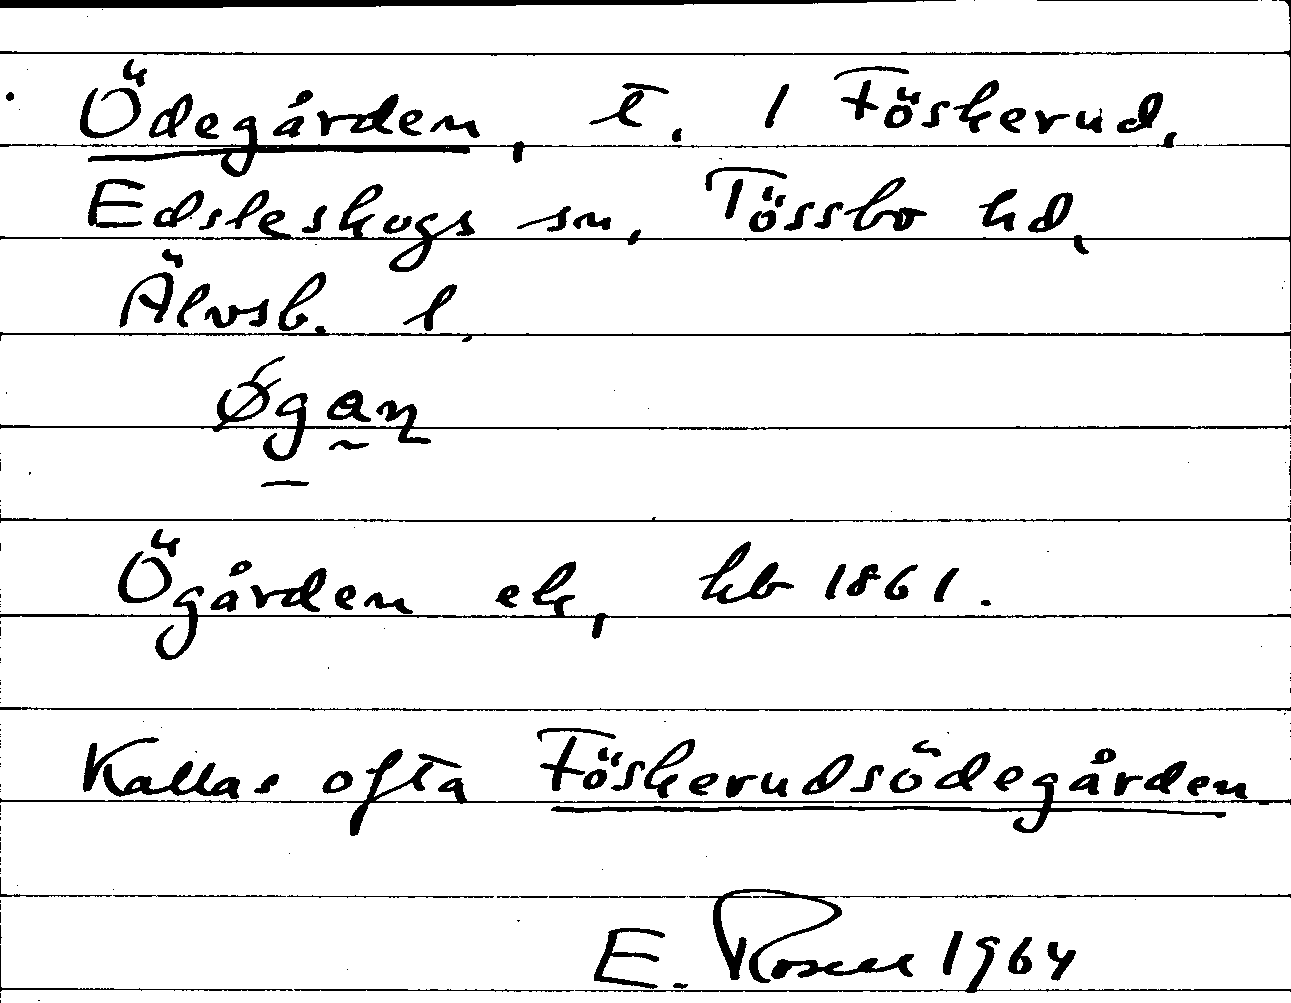 Ödegården, t. 1 Föskerud,
Edsleskogs sn, Tössbo hd,
Älvsb. l.
Øgan
Ögården ek, kb 1861.
Kallas ofta Föskerudsödegården
E. Rosell 1964